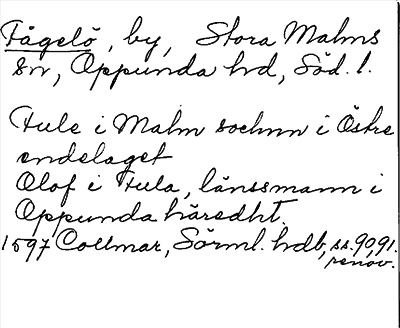 Fågelö, by, Stora Malms
sn, Oppunda hd, Söd. l.
Fule i Malm sochnn i Östre
endelaget
Olof i Fula, länssmann i
Oppunda häredht.
1597 Collmar, Sörml. hdb, ss. 90, 91.
renov.